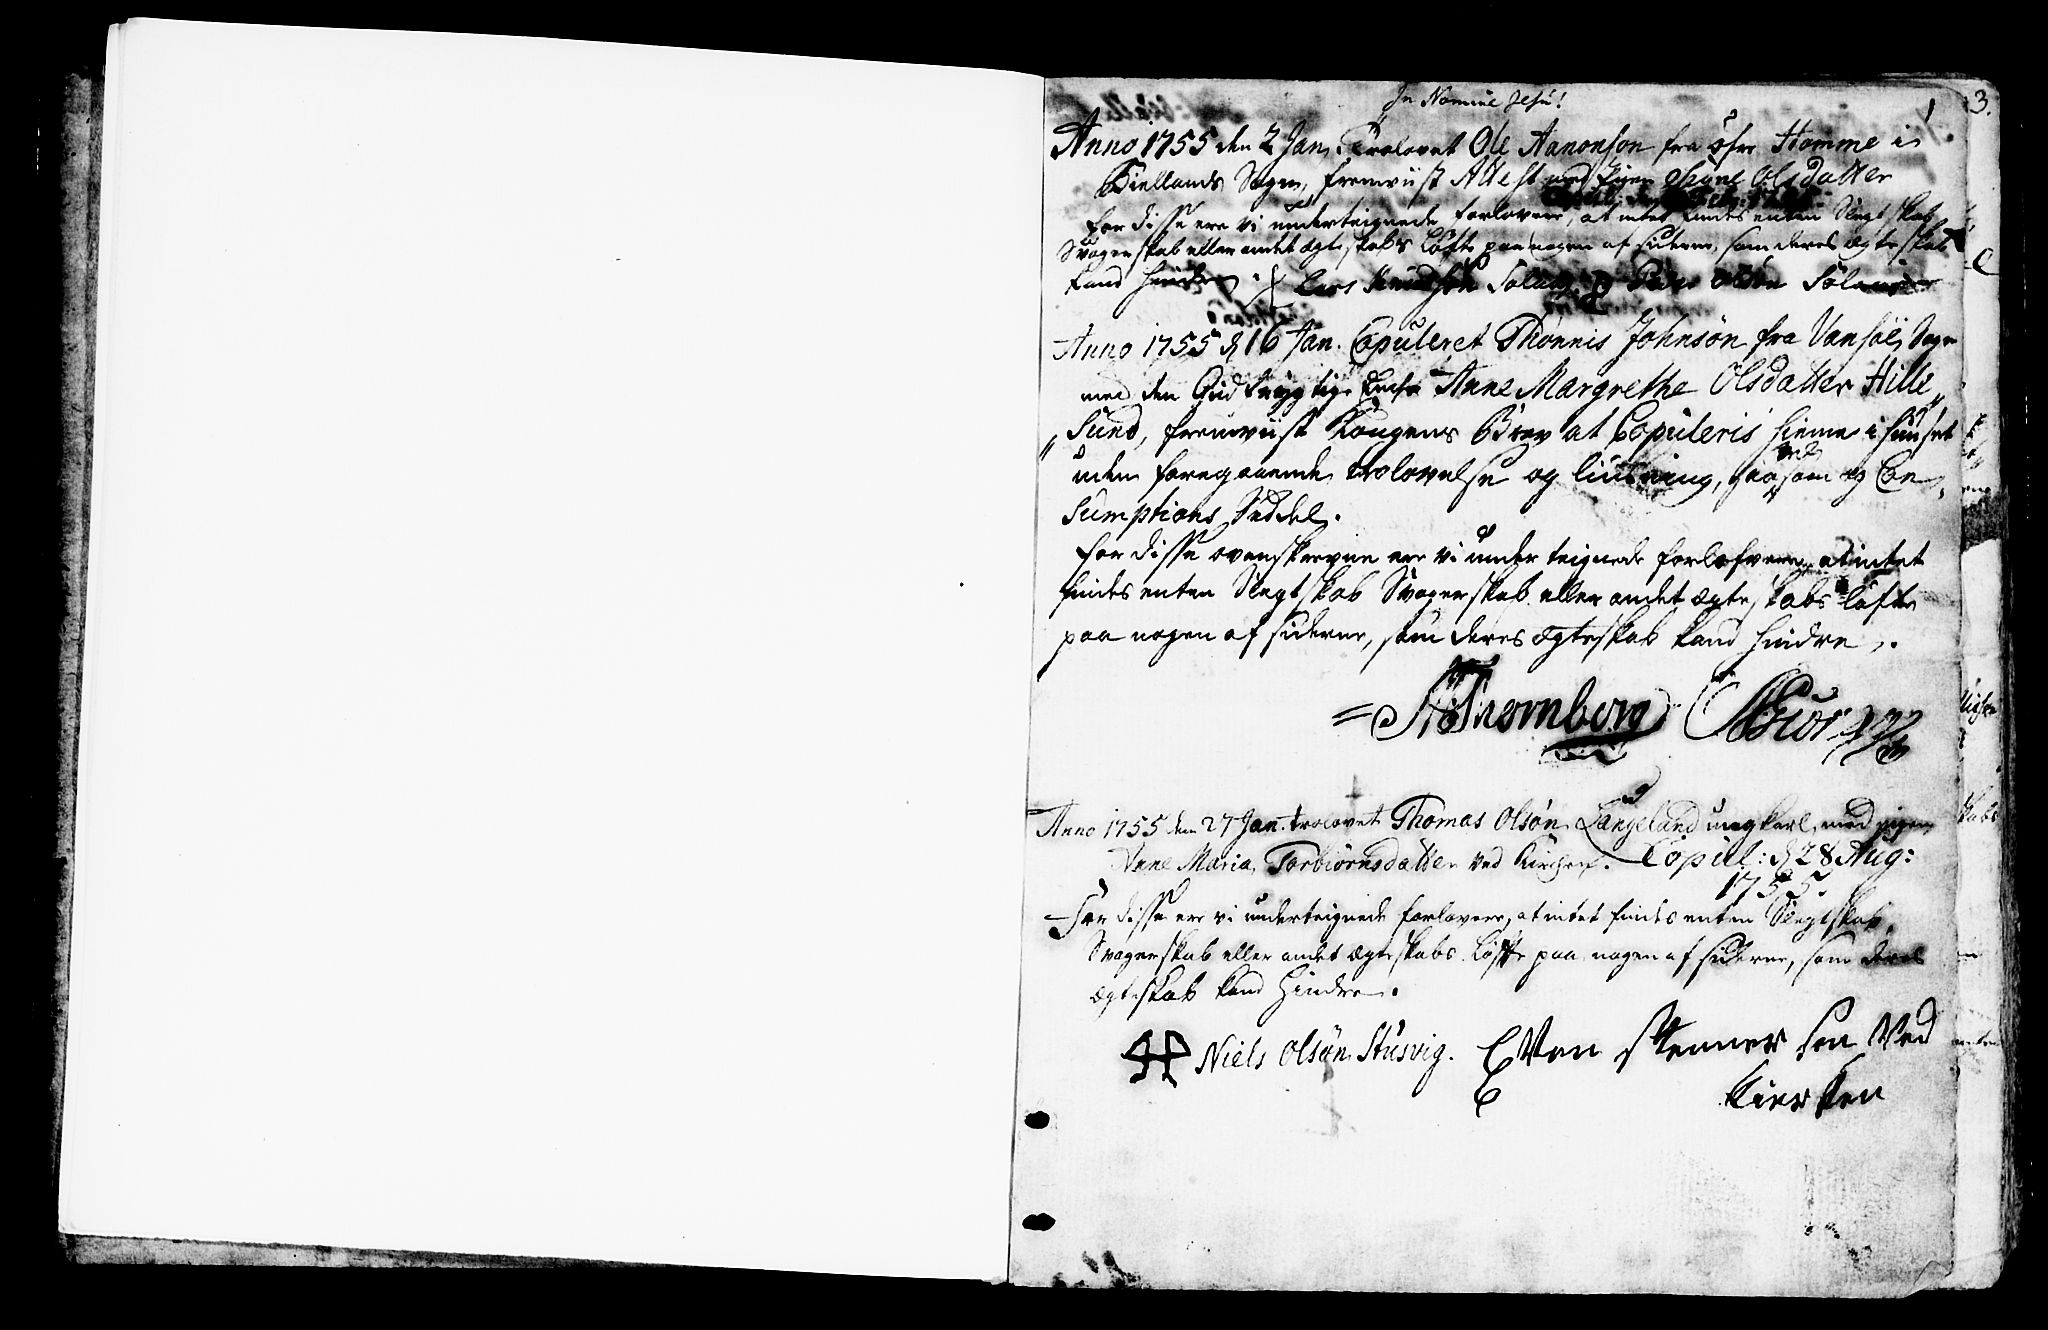 In Nomine Jesu!
1
3.
Anno 1755 den 2 Jan. Trolovet Ole Aanonsøn fra øfre Homme i
Biellands Sogn, fremviist Attest med Pigen Siøne Olsdatter
Copul:
for disse ere vi underteignede forlovere, at intet findes enten Slegtskab
Svogerskab eller andet ægteskabs Løfte paa nogen af siderne, som deres ægteskab
kand hindre. Lars Knudsøn Peder Olsøn
Anno 1755 d 16 Jan. Copuleret Thønnis Johnsøn fra Vansøe Sogn
med den Gudfrygtige Anne Margrethe Olsdatter Hille„
„Sund, fremviist Kongens Brev at Copuleris hieme i huuset
uden foregaaende trolovelse og liusning, saasom og Con„
Sumptions Seddel.
for disse ovenskrevne ere vi underteignede forlofvere, at intet
findes enten Slegtskab Svogerskab eller andet ægteskabs løfte
paa nogen af siderne, som deres ægteskab kand hindre.
Thornberg
Anno 1755 den 27 Jan. trolovet Thomas Olsøn Langeland ungkarl, med pigen
Anne Maria Torbiørnsdatter ved Kirchen. Copul: d 28 Aug:
1755.
For disse ere vi underteignede forlovere, at intet findes enten Slegtskab,
Svogerskab eller andet ægteskabs Løfte paa nogen af siderne, som deres
ægteskab kand hindre.
Niels Olsøn Stusvig. Even stenner sen Ved
Kierken